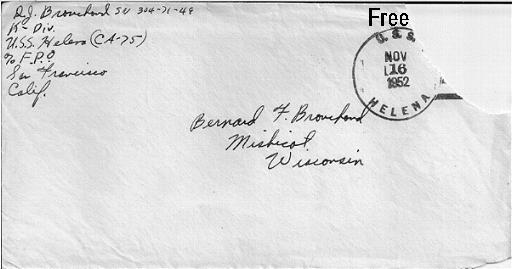 D.J. Brouchoud SN 304-71-48
K-Div.
U.S.S. Helena (CA-75)
% F.P.O.
San Francisco
Calif.
Free
U. S. S.
NOV
16
1952
HELENA
Bernard F. Brouchoud
Mishicot,
Wisconsin